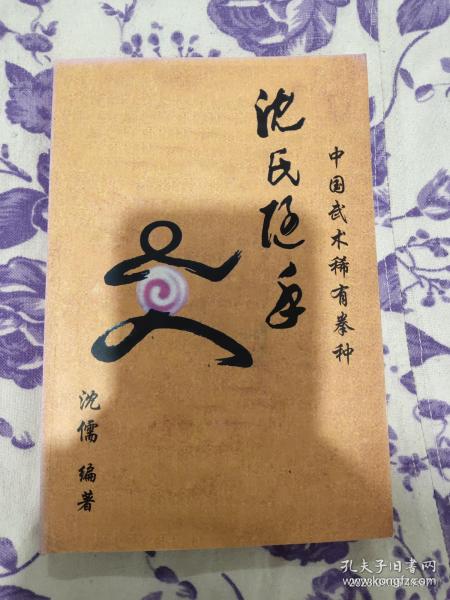 沈氏随手
中国武术稀有拳种
沈儒 编著
孔夫子旧书网